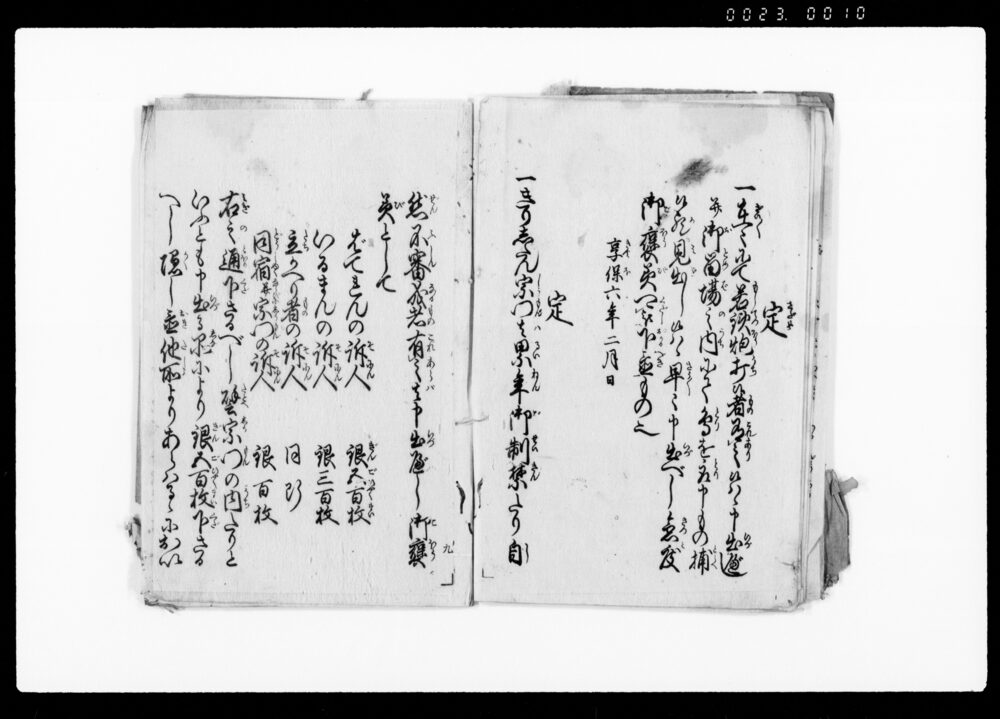 0023. 0010
定
一在々にて若鉄炮打候者有之候ハヽ申出遍
并御留場之内にて鳥を取申もの捕
候歟見出し候ハヽ早々申出べし急度
御褒美可被下置もの也
享保六年二月日
定
一きりしたん宗門は累年御制禁たり自
然不審成者有之は申出遍し御褒
美として
ばてれんの訴人 銀五百枚
いるまんの訴人 銀三百枚
立かへり者の訴人 同断
同宿并宗門の訴人 銀百枚
右之通下さるべし譬宗門の内たりと
いふとも申出る品により銀五百枚下さる
へし隠し置他所よりあらハるゝにおい
九